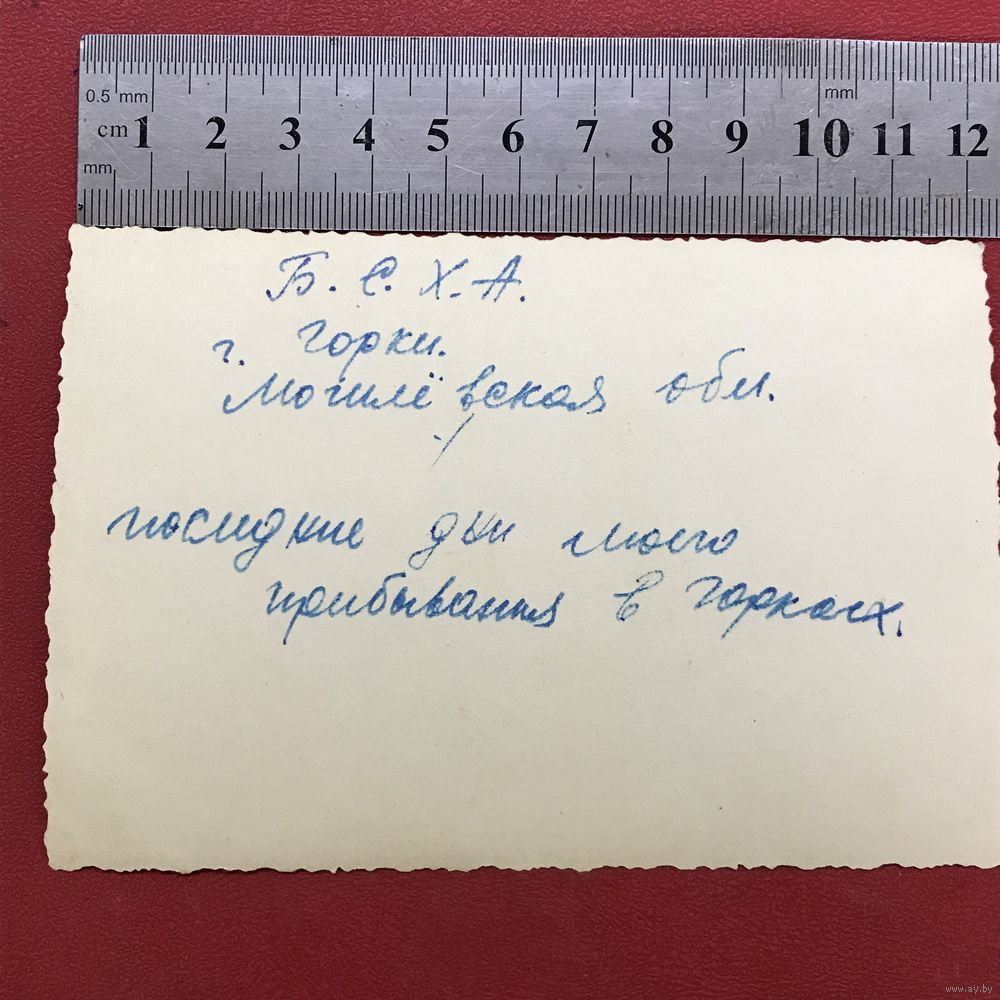 0.5 mm
mm
cm 1 2 3 4 5 6 7 8 9 10 11 12
mm
Б. С. Х. А.
г. Горки.
Могилёвская обл.
последние дни моего
прибывания в Горках.
www.ay.by